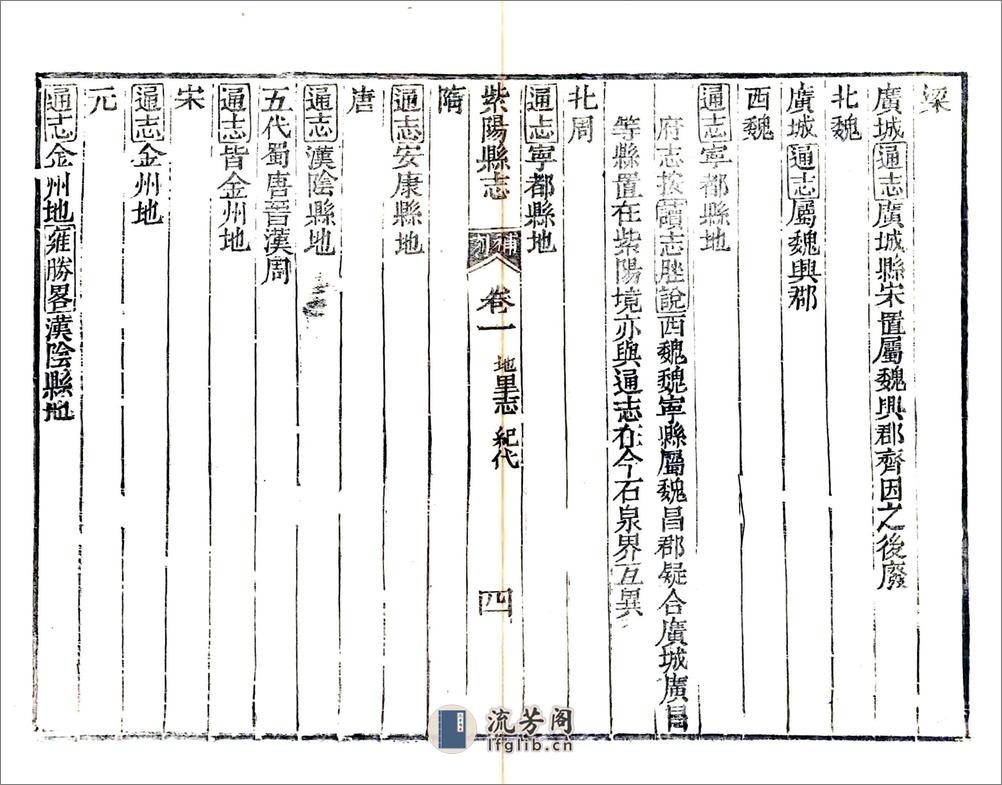 梁
廣城通志廣城縣宋置屬魏興郡齊因之後廢
北魏
廣城通志屬魏興郡
西魏
通志寧都縣地
府志按讀志脞說西魏魏寧縣屬魏昌郡疑合廣城廣昌
等縣置在紫陽境亦與通志在今石泉界互異
北周
通志寧都縣地
紫陽縣志
卷一
地里志 紀代
四
隋
通志安康縣地
唐
通志漢陰縣地
五代蜀唐晉漢周
通志皆金州地
宋
通志金州地
元
通志金州地雍勝畧漢陰縣地
流芳阁
lfglib.cn